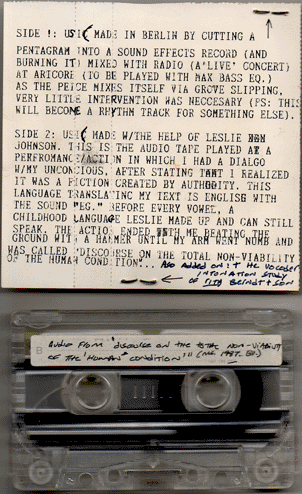 SIDE 1: USIC MADE IN BERLIN BY CUTTING A
PENTAGRAM INTO A SOUND EFFECTS RECORD (AND
BURNING IT) MIXED WITH RADIO (A'LIVE' CONCERT)
AT ARICORE (TO BE PLAYED WITH MAX BASS EQ.)
AS THE PEICE MIXES ITSELF VIA GROVE SLIPPING,
VERY LITTLE INTERVENTION WAS NECCESARY (PS: THIS
WILL BECOME A RHYTHM TRACK FOR SOMETHING ELSE).
SIDE 2: USIC MADE W/THE HELP OF LESLIE
JOHNSON. THIS IS THE AUDIO TAPE PLAYED AT A
PERFROMANCE/ACTION IN WHICH I HAD A DIALGO
W/MY UNCONCIOUS, AFTER STATING THAT I REALIZED
IT WAS A FICTION CREATED BY AUTHORITY. THIS
LANGUAGE TRANSLATING MY TEXT IS ENGLISH WITH
THE SOUND "EG." BEFORE EVERY VOWEL, A
CHILDHOOD LANGUAGE LESLIE MADE UP AND CAN STILL
SPEAK. THE ACTION ENDED WITH ME BEATING THE
GROUND WITH A HAMMER UNTIL MY ARM WENT NUMB AND
WAS CALLED "DISCOURSE ON THE TOTAL NON-VIABILITY
OF THE HUMAN CONDITION... Also added on: THe vocoder
intonation study
of Berndt + son
B
Audio from "discource on the total non-viability
of the 'human' condition'"